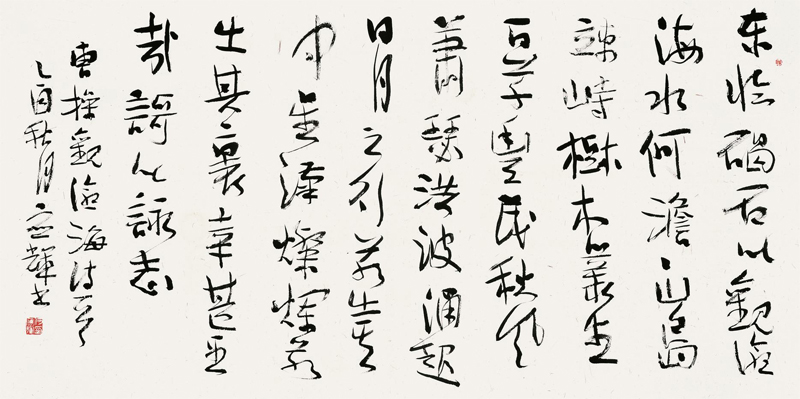 東臨碣石以觀滄
海水何澹〻山島
竦峙樹木叢生
百草豐茂秋風
蕭瑟洪波湧起
日月之行若出其
中星漢燦爛若
出其裏幸甚至
哉謌以詠志
曹操觀滄海詩一首
乙酉秋月輝書